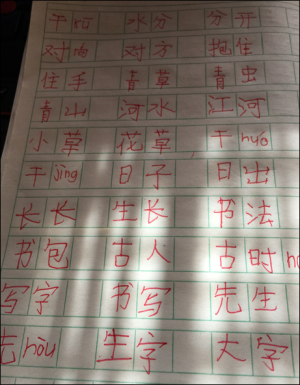 干 水分 分开
对 对方 抱住
住手 青草 青虫
青山 河水 江河
小草 花草 干huó
干jìng 日子 日出
长长 生长 书法
书包 古人 古时
写字 书写 先生
先hòu 生字 大字